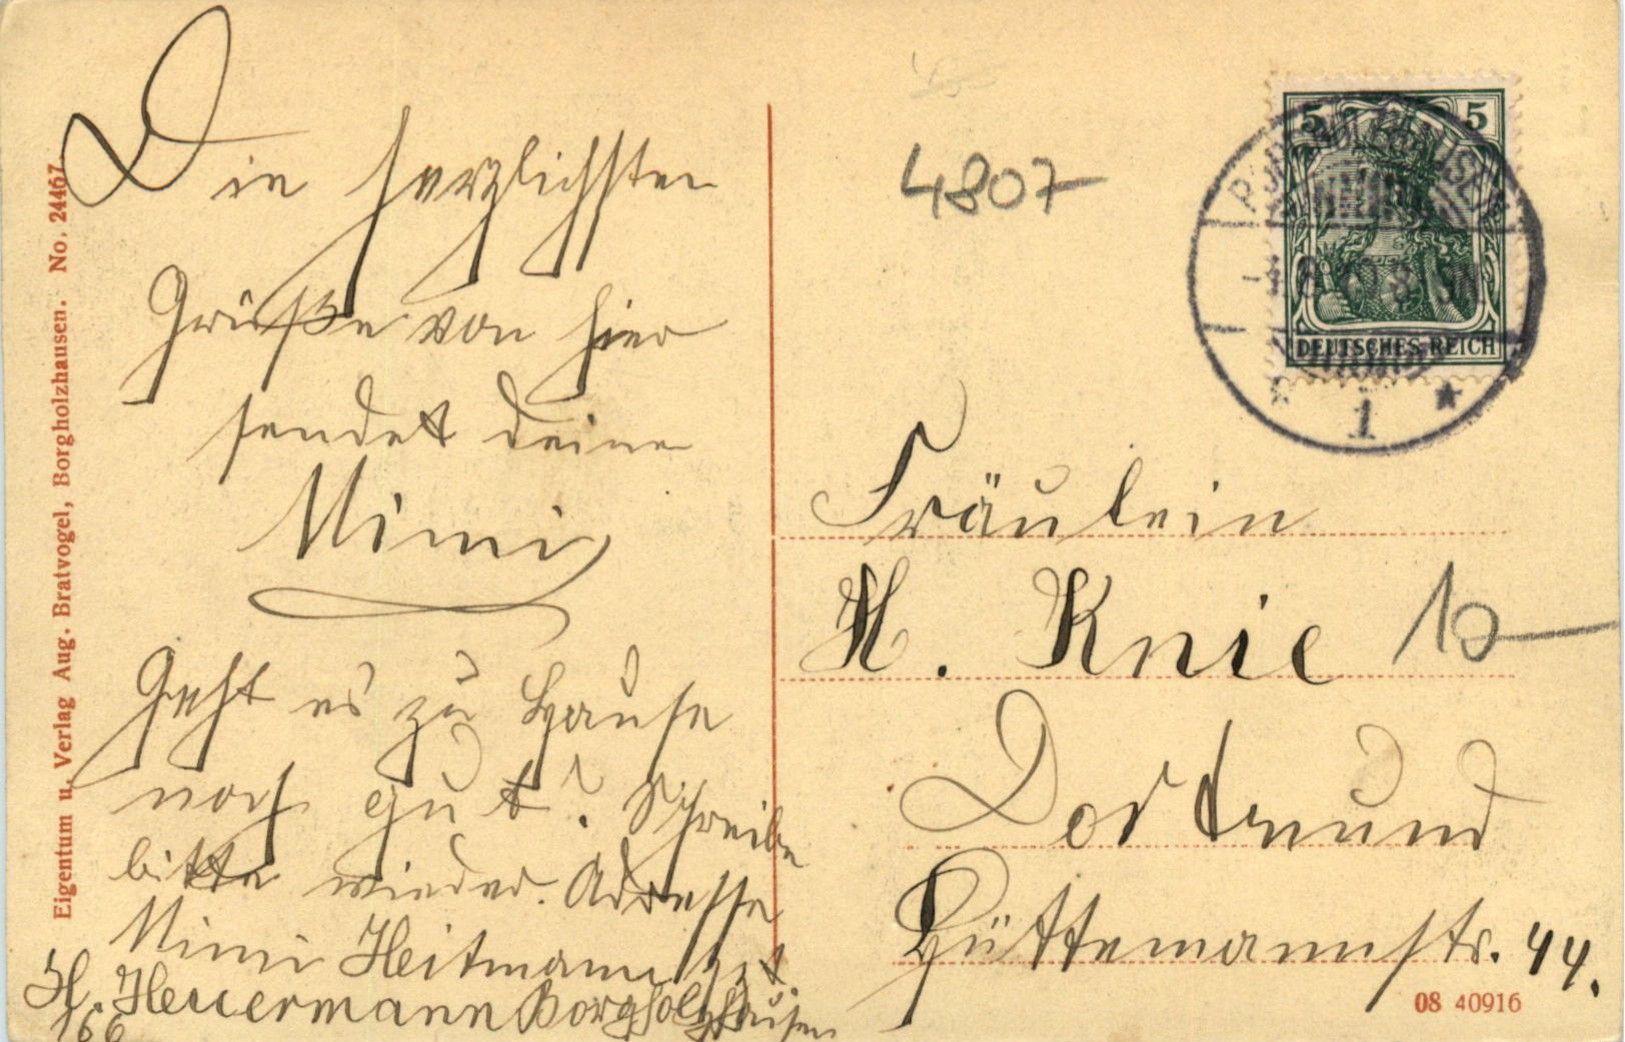 Die herzlichsten
Grüße von hier
sendet deine
Mimi
Geht es zu Hause
noch gut? Schreibe
bitte wieder. Adresse
Mimi Heitmann zzt.
H. Heuermann Borgholzhausen
166
Eigentum u. Verlag Aug. Bratvogel, Borgholzhausen. No. 24467.
4807
5 5
DEUTSCHES REICH
1
Fräulein
H. Knie
10
Dortmund
Hüttemannstr. 44.
08 40916